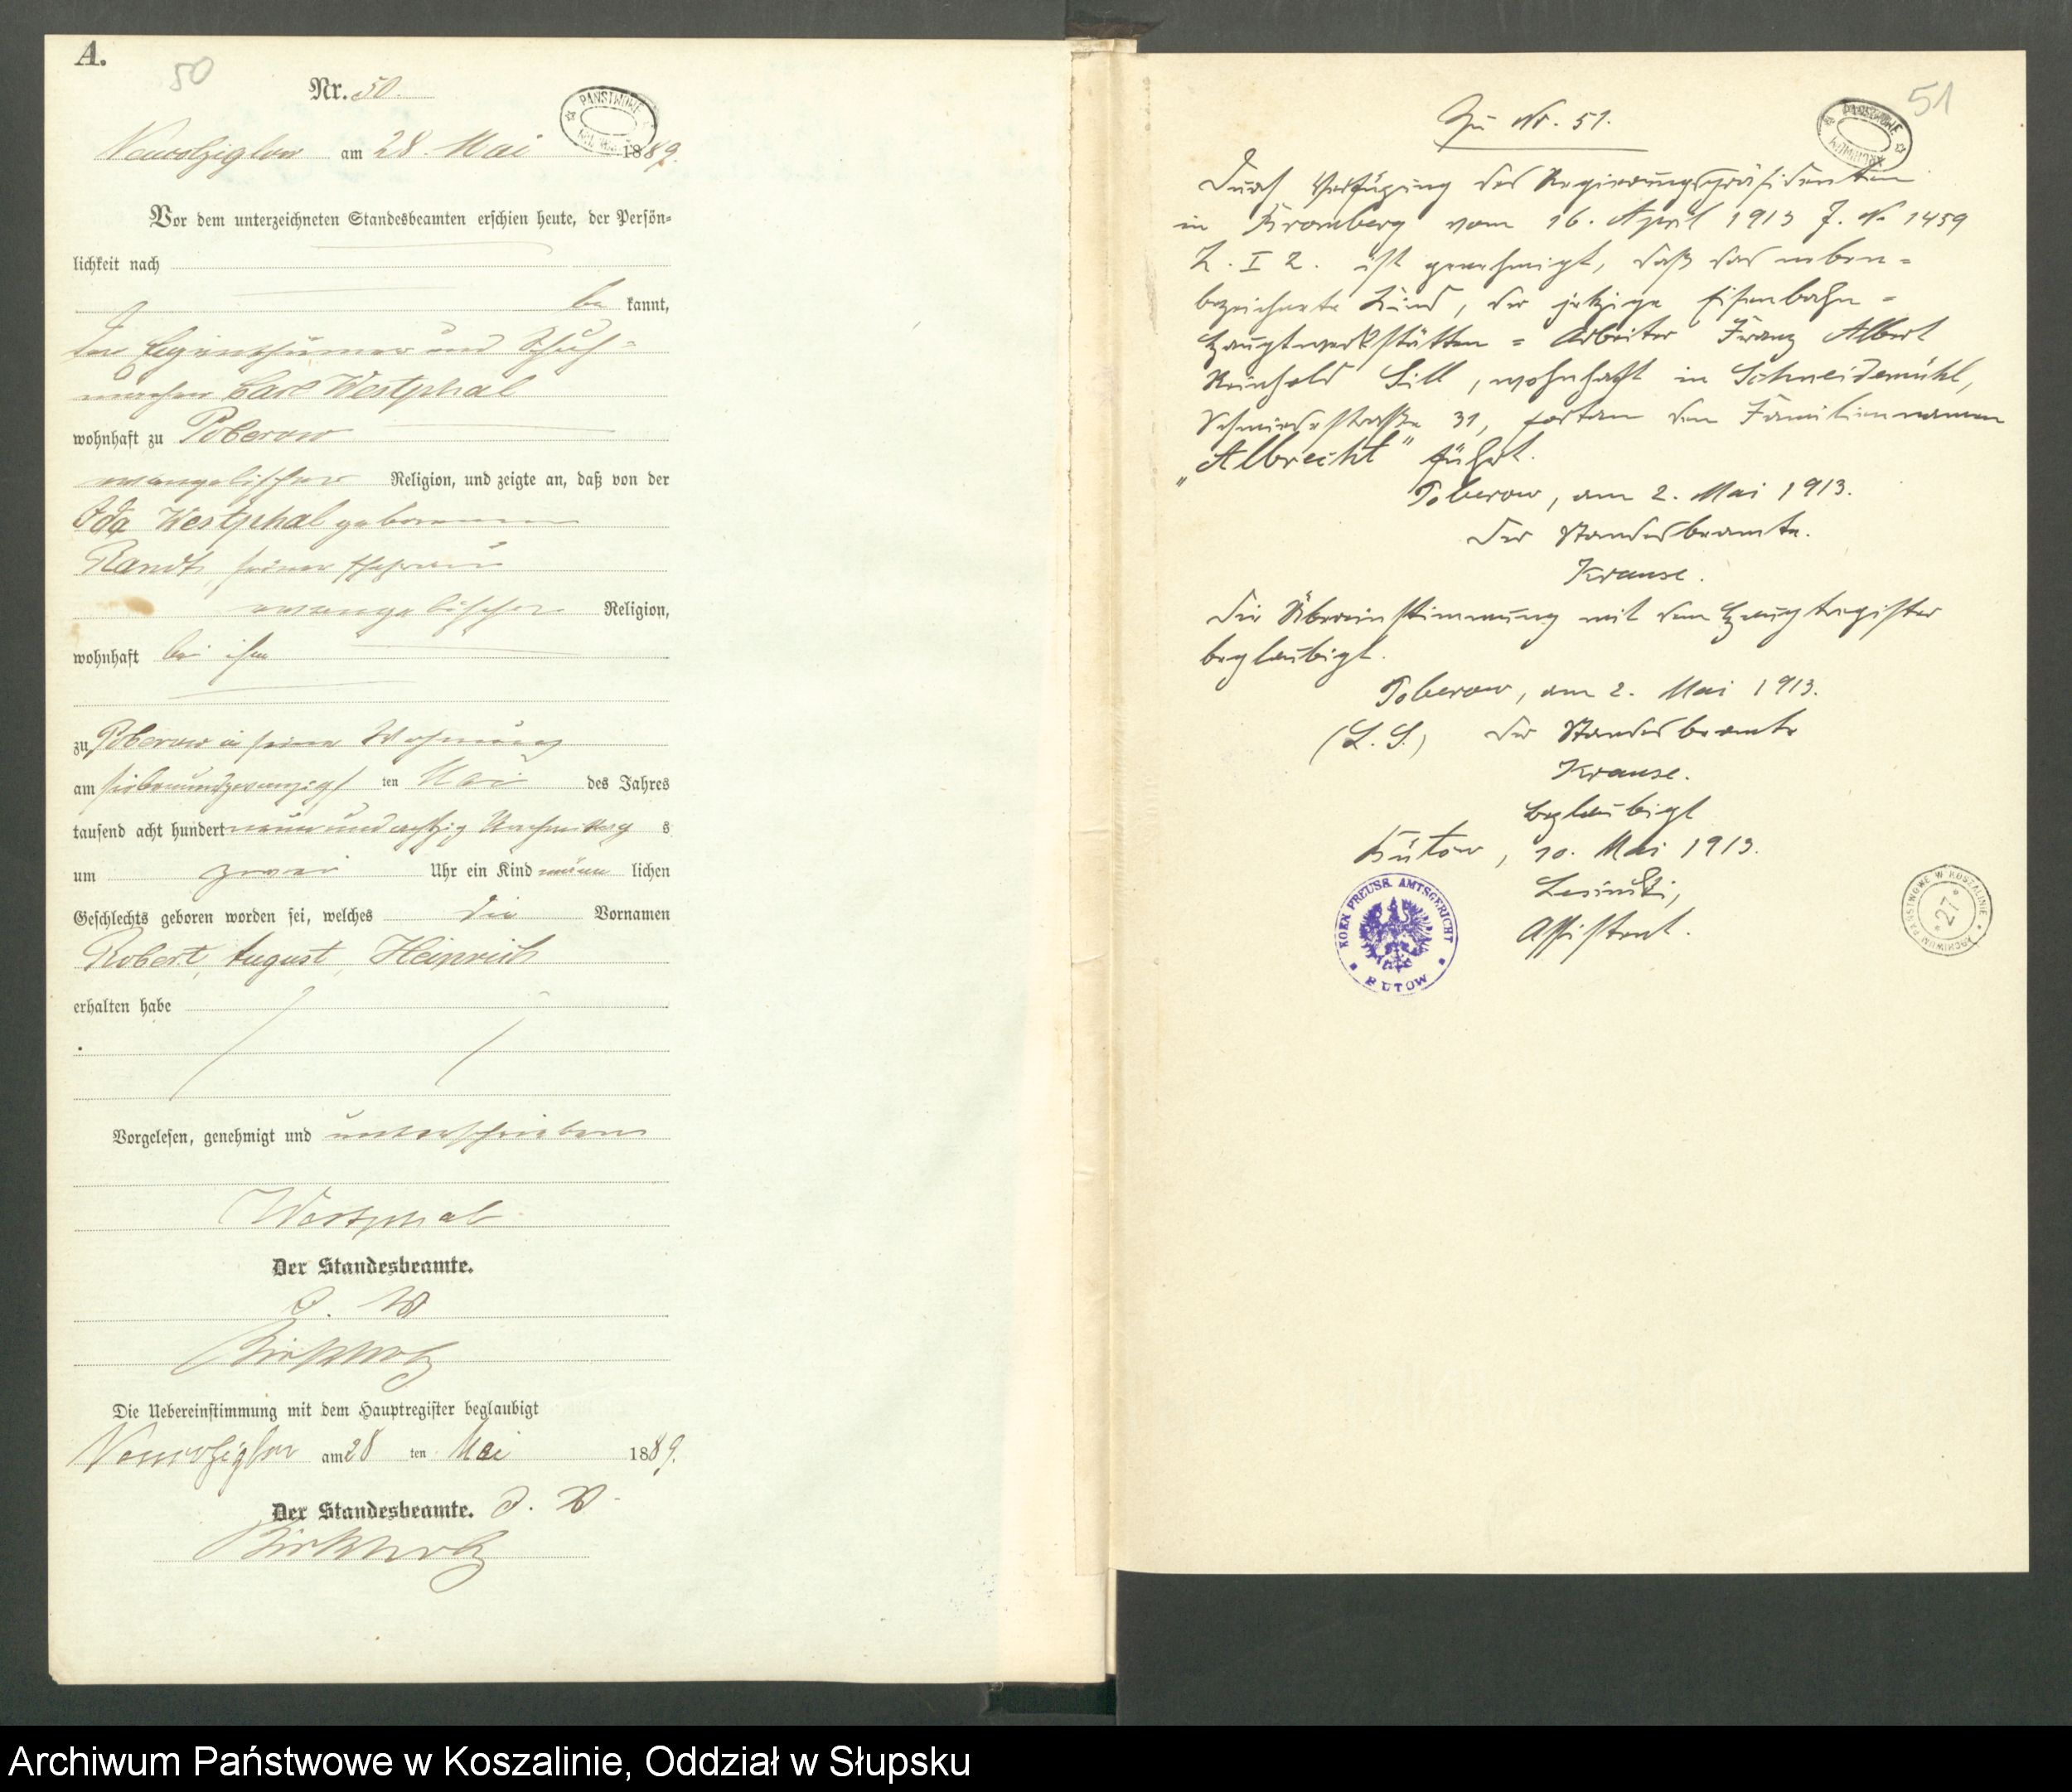 A.
50
Nr. 50.
PAŃSTWOWE
am 28. Mai 1889.
Vor dem unterzeichneten Standesbeamten erschien heute, der Persön=
lichkeit nach
be kannt,
der Eigenthümer und Schuh=
macher Carl Westphal
wohnhaft zu Poberow
evangelischer Religion, und zeigte an, daß von der
Ida Westphal geborenen
Randt, seiner Ehefrau
evangelischer Religion,
wohnhaft bei ihm
zu Poberow in seiner Wohnung
am siebenundzwanzigs ten Mai des Jahres
tausend acht hundert neun und achtzig Nachmittag s
um zwei Uhr ein Kind männ lichen
Geschlechts geboren worden sei, welches die Vornamen
Robert, August, Heinrich
erhalten habe
Vorgelesen, genehmigt und unterschrieben
Westphal
Der Standesbeamte.
J. V.
Birkholz
Die Uebereinstimmung mit dem Hauptregister beglaubigt
am 28 ten Mai 1889.
Der Standesbeamte. J. V.
Birkholz
51
Zu Nr. 51.
PAŃSTWOWE
ARCHIWUM
Durch Verfügung des Regierungspräsidenten
in Bromberg vom 16. April 1913 J. No 1459
I 2. ist genehmigt, daß das neben=
bezeichnete Kind, der jetzige Eisenbahn=
Hauptwerkstätten=Arbeiter Franz Albert
Reinhold Sill, wohnhaft in Schneidemühl,
Schmiedestraße 31, fortan den Familiennamen
„Albrecht" führt.
Poberow, am 2. Mai 1913.
Der Standesbeamte.
Krause.
Die Übereinstimmung mit dem Hauptregister
beglaubigt.
Poberow, am 2. Mai 1913.
(L. S.) Der Standesbeamte
Krause.
Beglaubigt
Bütow, 10. Mai 1913.
Assistent.
KOEN. PREUSS. AMTSGERICHT
BÜTOW
ARCHIWUM PAŃSTWOWE W KOSZALINIE
27
Archiwum Państwowe w Koszalinie, Oddział w Słupsku